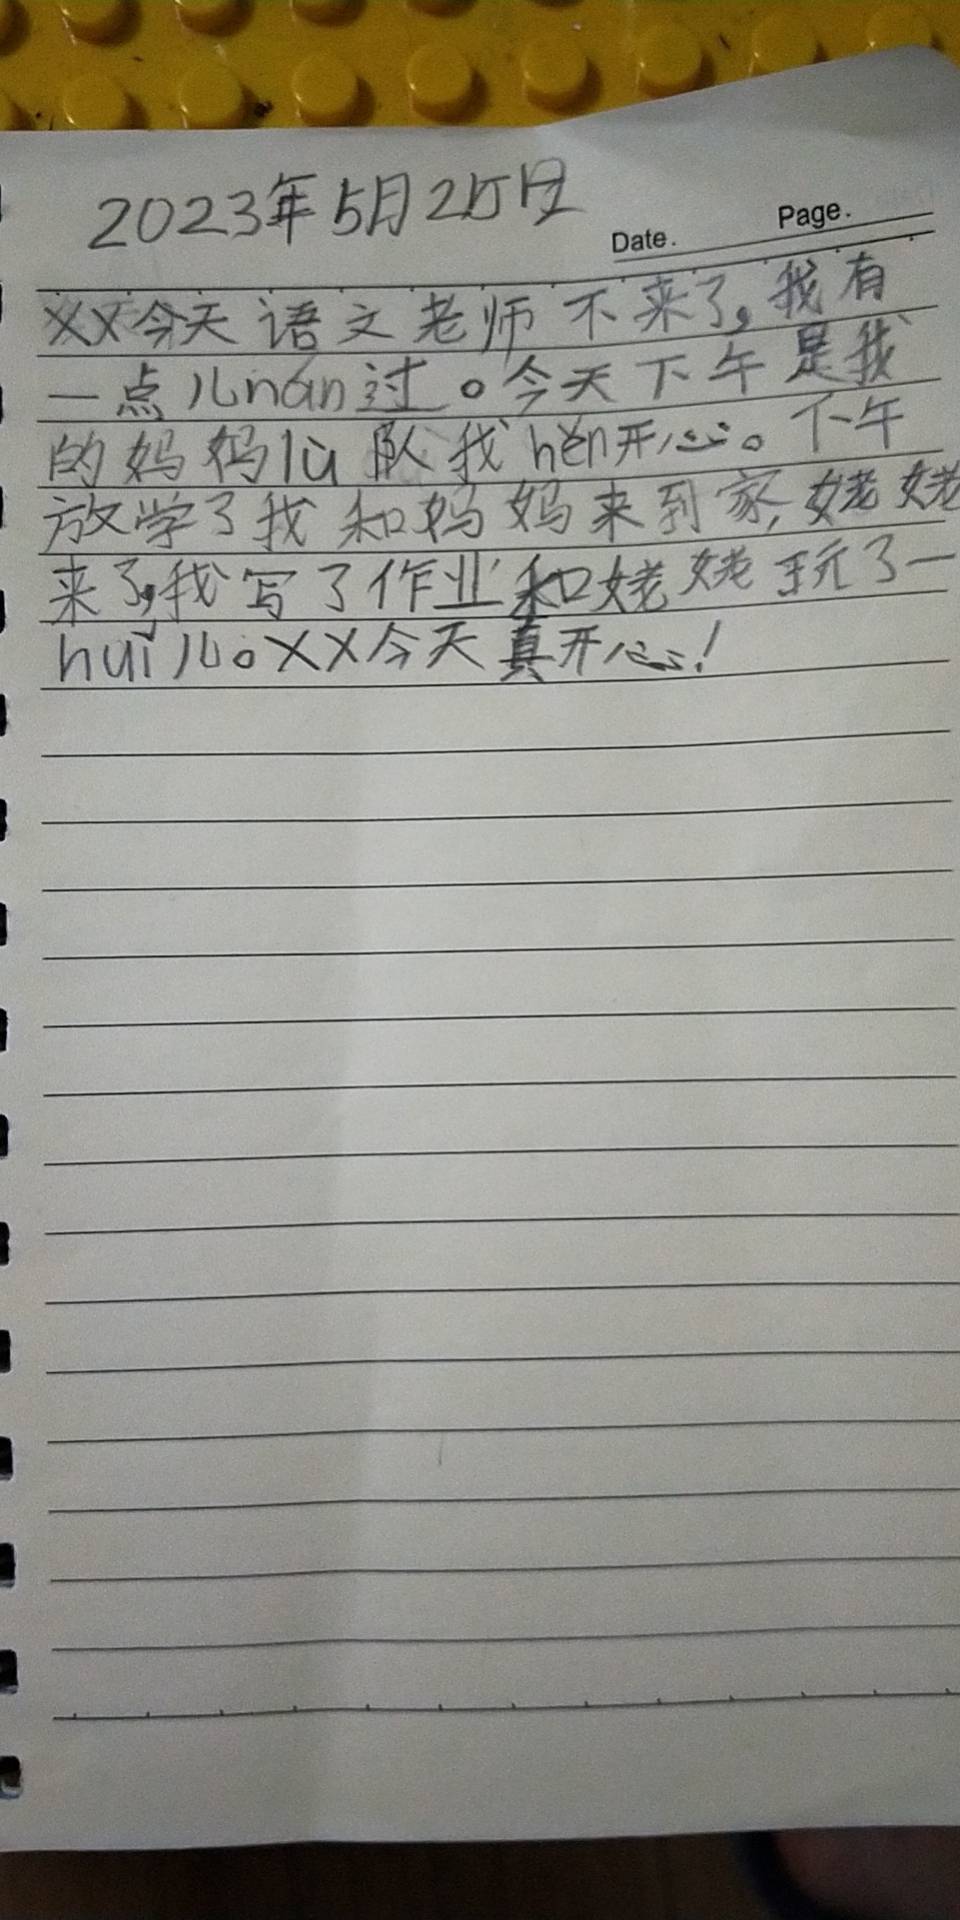 2023年5月25日
Date. Page.
XX今天语文老师不来了,我有
一点儿nán过。今天下午是我
的妈妈lù队我hěn开心。下午
放学了我和妈妈来到家,姥姥
来了,我写了作业和姥姥玩了一
huǐ儿。XX今天真开心!